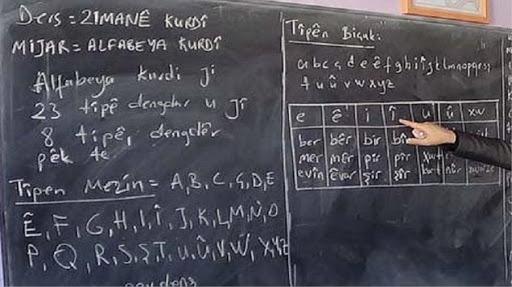 Ders = ZIMANÊ KURDÎ
MIJAR = ALFABEYA KURDÎ
Alfabeya kurdi ji
23 tipê dengdar u ji
8 tipê, dengdêr
pêk te
Tipên Mezin = A, B, C, Ç, D, E
Ê, F, G, H, I, Î, J, K, L, M, N, O
P, Q, R, S, Ş, T, U, Û, V, W, X, Y, Z
Tipên Biçuk:
a b c ç d e ê f g h i î j k l m n o p q r s ş
t u û v w x y z
e ê i î u û xw
ber bêr bir
mer mêr pir pîr
evîn êvar şir şîr nûr